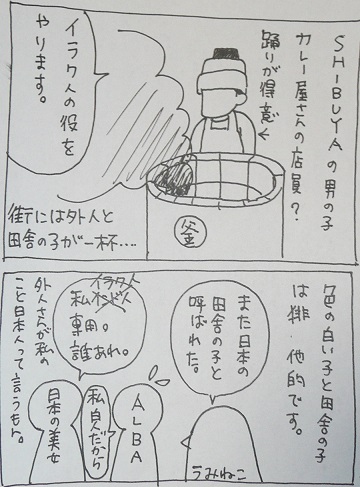 SHIBUYAの男の子
カレー屋さんの店員?
踊りが得意
イラク人の役を
やります。
街には外人と
田舎の子が一杯…
釜
色の白い子と田舎の子
は排他的です。
また日本の
田舎の子と
呼ばれた。
うみねこ
イラク人
私インド人
専用。
誰あれ。
ALBA
私白人だから
日本の美女
外人さんが私の
こと日本人って言うもん。